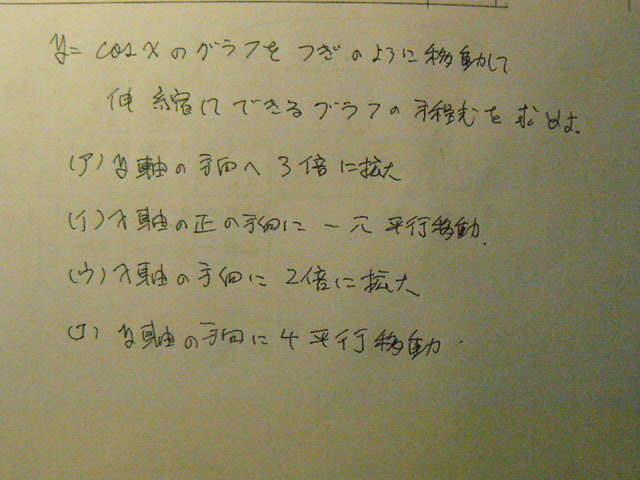 y= cosxのグラフを つぎのように移動して
伸縮してできるグラフの方程式を求めよ.
(ア) y軸の方向へ 3倍に拡大
(イ) x軸の正の方向に -π 平行移動.
(ウ) x軸の方向に 2倍に拡大
(エ) y軸の方向に 4 平行移動.